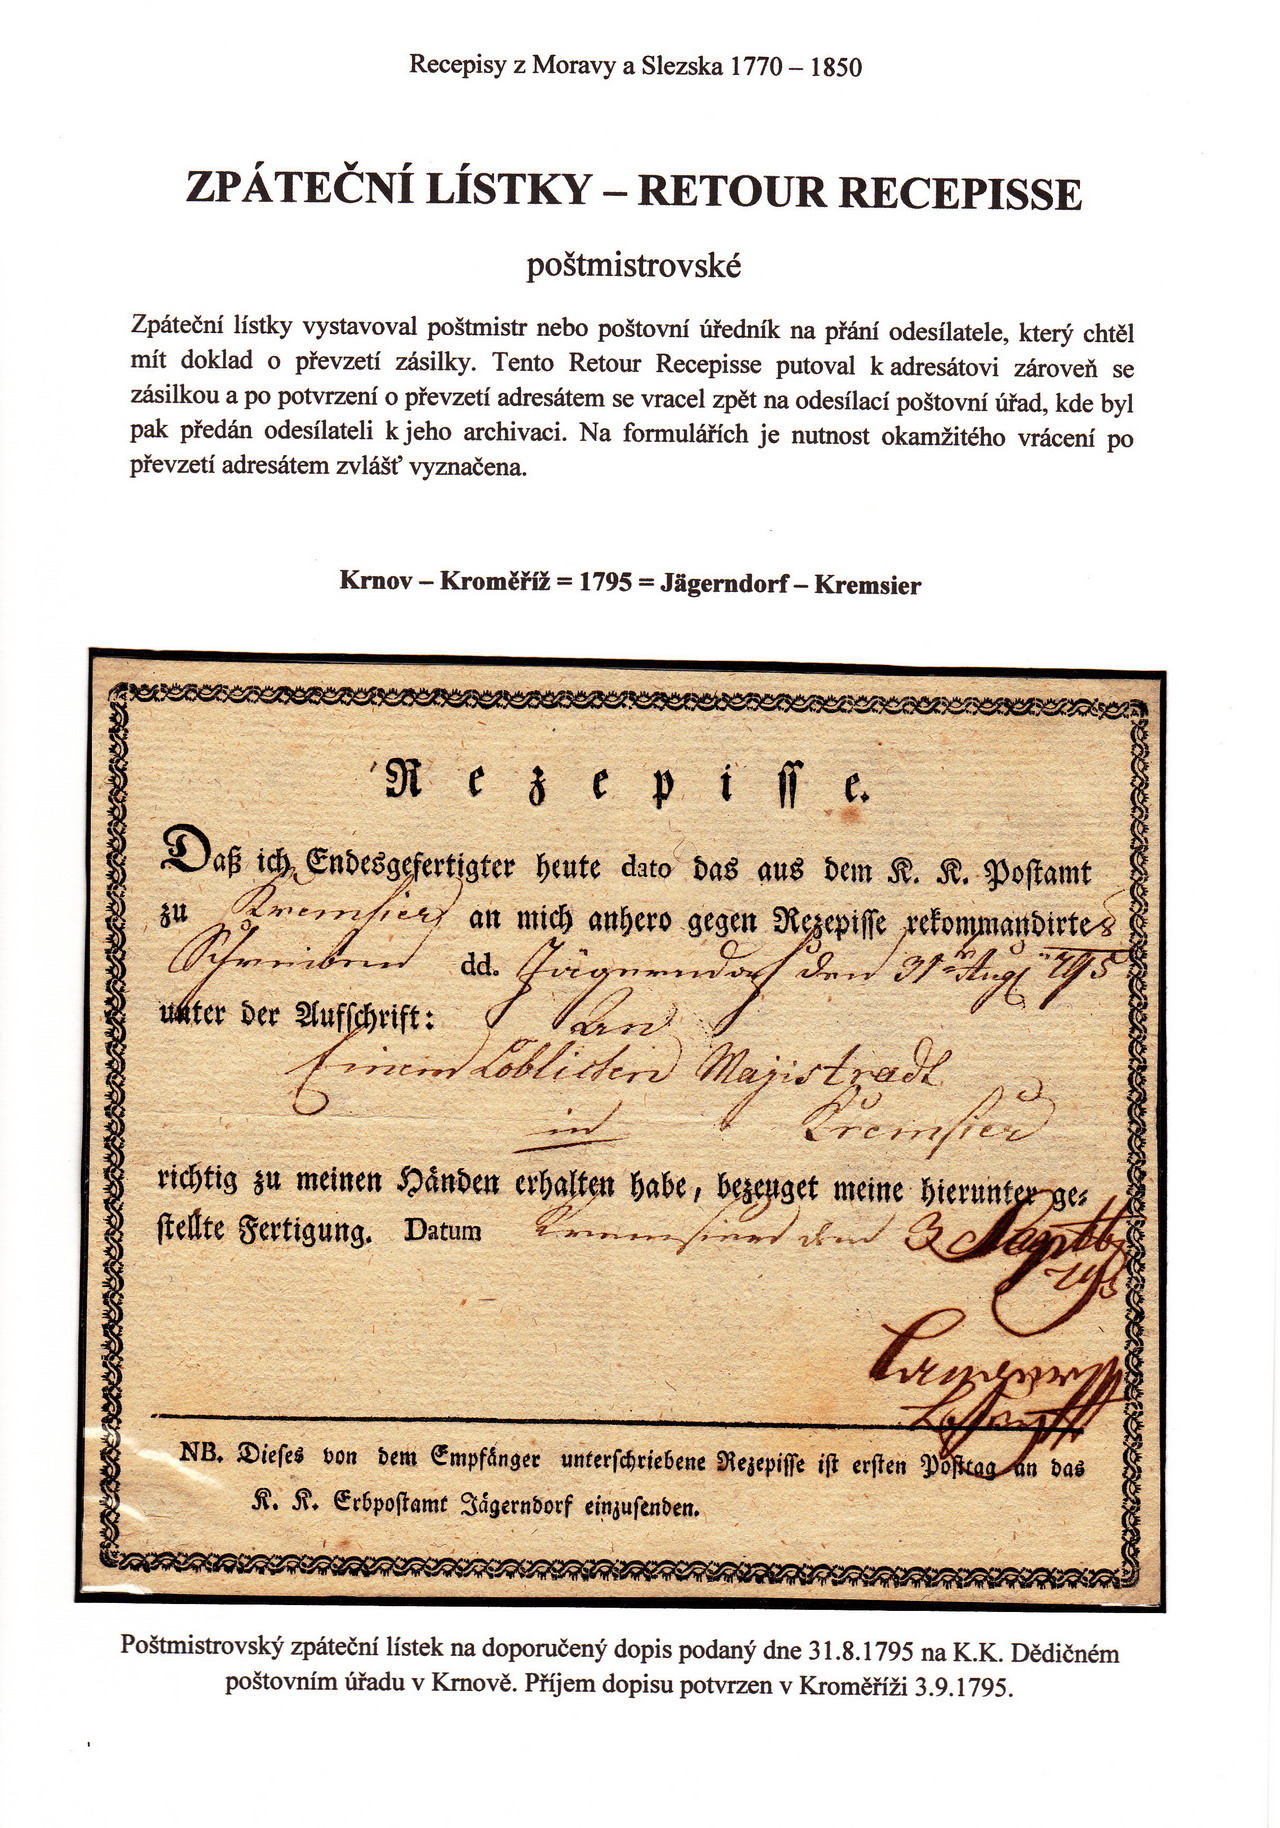 Recepisy z Moravy a Slezska 1770 – 1850
ZPÁTEČNÍ LÍSTKY – RETOUR RECEPISSE
poštmistrovské
Zpáteční lístky vystavoval poštmistr nebo poštovní úředník na přání odesílatele, který chtěl
mít doklad o převzetí zásilky. Tento Retour Recepisse putoval k adresátovi zároveň se
zásilkou a po potvrzení o převzetí adresátem se vracel zpět na odesílací poštovní úřad, kde byl
pak předán odesílateli k jeho archivaci. Na formulářích je nutnost okamžitého vrácení po
převzetí adresátem zvlášť vyznačena.
Krnov – Kroměříž = 1795 = Jägerndorf – Kremsier
Rezepisse.
Daß ich Endesgefertigter heute dato das aus dem K. K. Postamt
zu Kremsier an mich anhero gegen Rezepisse rekommandirtes
Schreiben dd. Jägerndorf den 31 Aug 795
unter der Aufschrift: An
Einem Löblichen Magistradt
in Kremsier
richtig zu meinen Händen erhalten habe, bezeuget meine hierunter ge-
stellte Fertigung. Datum Kremsier den 3
795
NB. Dieses von dem Empfänger unterschriebene Rezepisse ist ersten Posttag an das
K. K. Erbpostamt Jägerndorf einzusenden.
Poštmistrovský zpáteční lístek na doporučený dopis podaný dne 31.8.1795 na K.K. Dědičném
poštovním úřadu v Krnově. Příjem dopisu potvrzen v Kroměříži 3.9.1795.